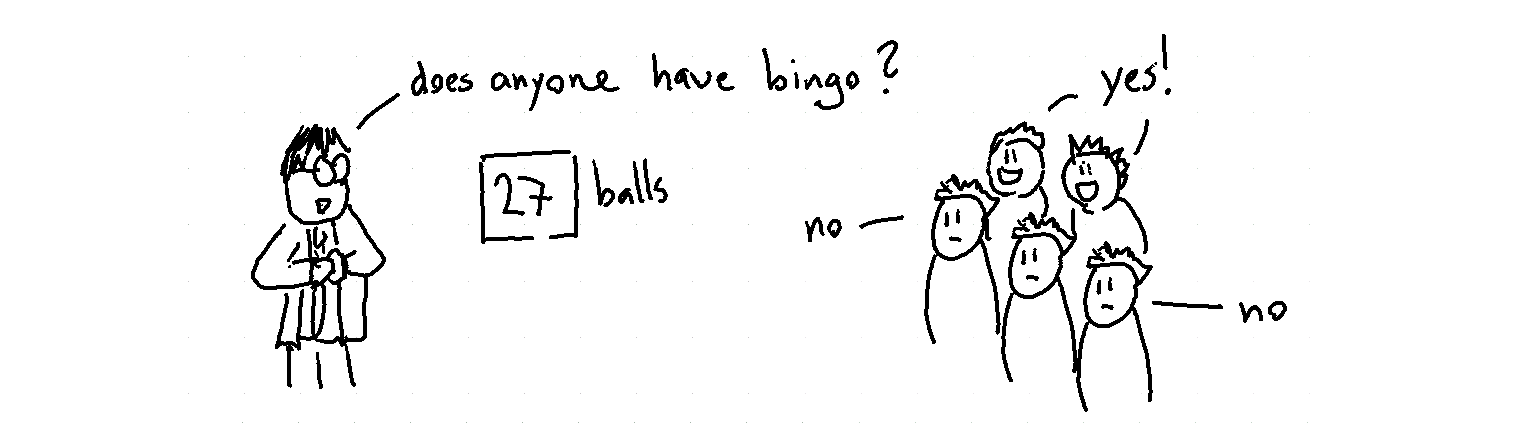 does anyone have bingo?
yes!
27 balls
no
no